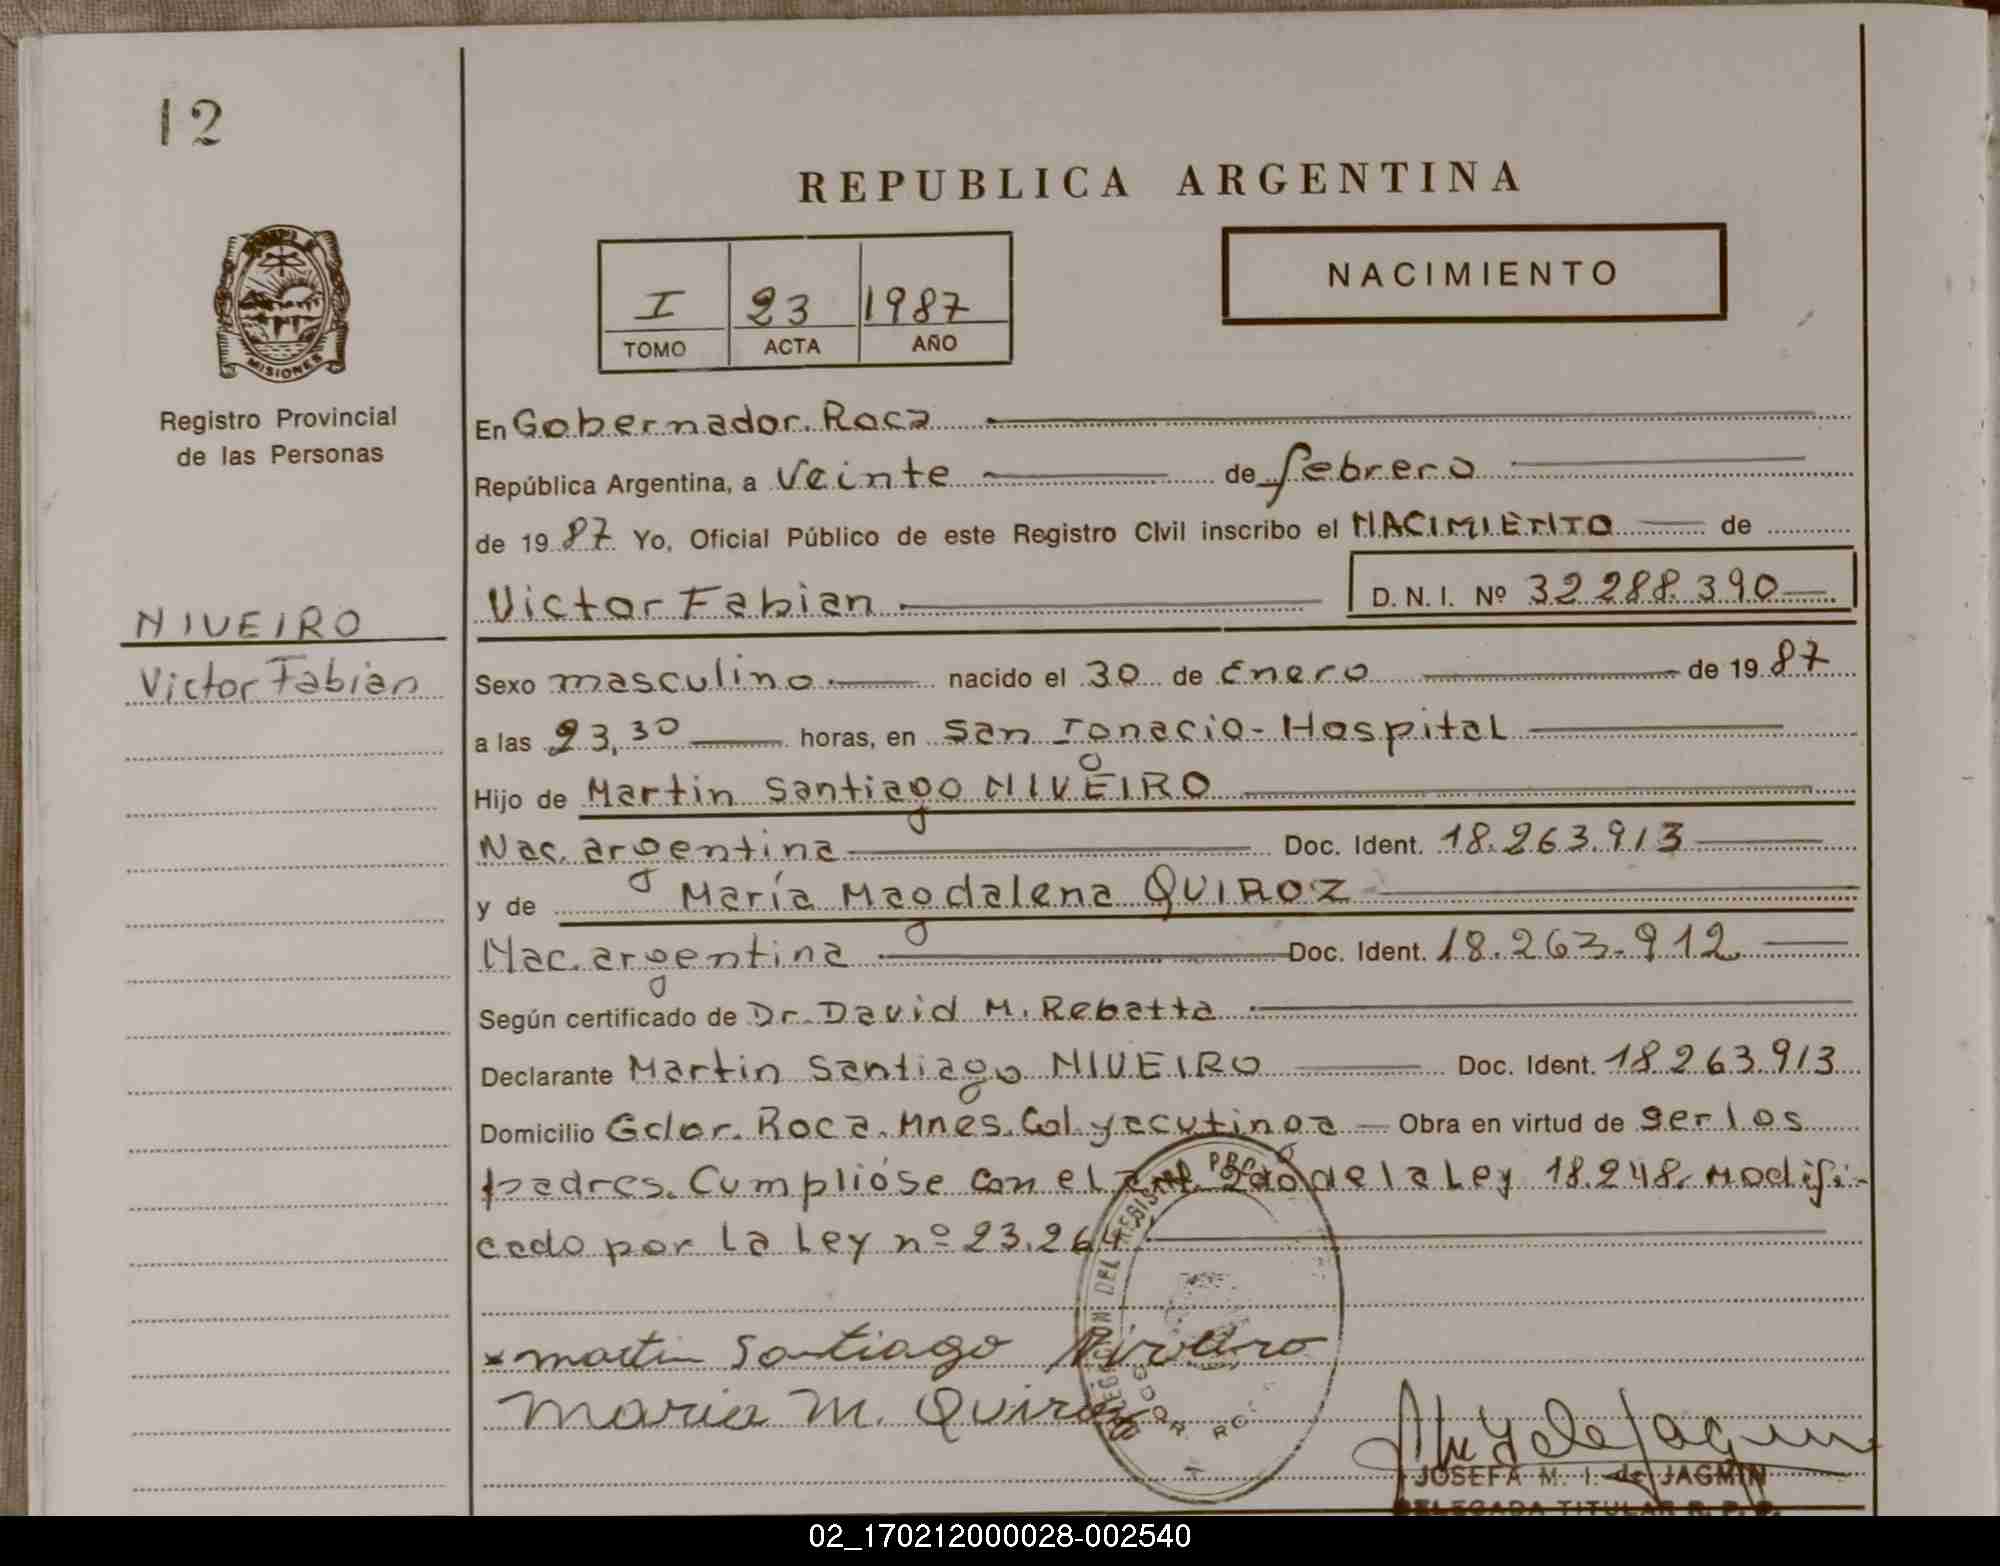 12
REPUBLICA ARGENTINA
I 23 1987
TOMO ACTA AÑO
NACIMIENTO
MISIONES
Registro Provincial
de las Personas
NIVEIRO
Victor Fabian
En Gobernador Roca
República Argentina, a Veinte de febrero
de 1987 Yo, Oficial Público de este Registro Civil inscribo el NACIMIENTO de
Victor Fabian D. N. I. Nº 32.288.390
Sexo masculino nacido el 30 de Enero de 1987
a las 23,30 horas, en San Ignacio - Hospital
Hijo de Martin Santiago NIVEIRO
Nac. argentina Doc. Ident. 18.263.913
y de María Magdalena QUIROZ
Nac. argentina Doc. Ident. 18.263.912
Según certificado de Dr. David M. Rebatta
Declarante Martin Santiago NIVEIRO Doc. Ident. 18.263.913
Domicilio Gdor. Roca. Mnes. Col. yacutinga Obra en virtud de ser los
padres. Cumplióse con el art. de la Ley 18.248. Modifi-
cado por la Ley nº 23.264
martin Santiago Niveiro
Maria M. Quiroz
JOSEFA M. I. de JAGMIN
DELEGADA TITULAR R. P. P.
02_170212000028-002540